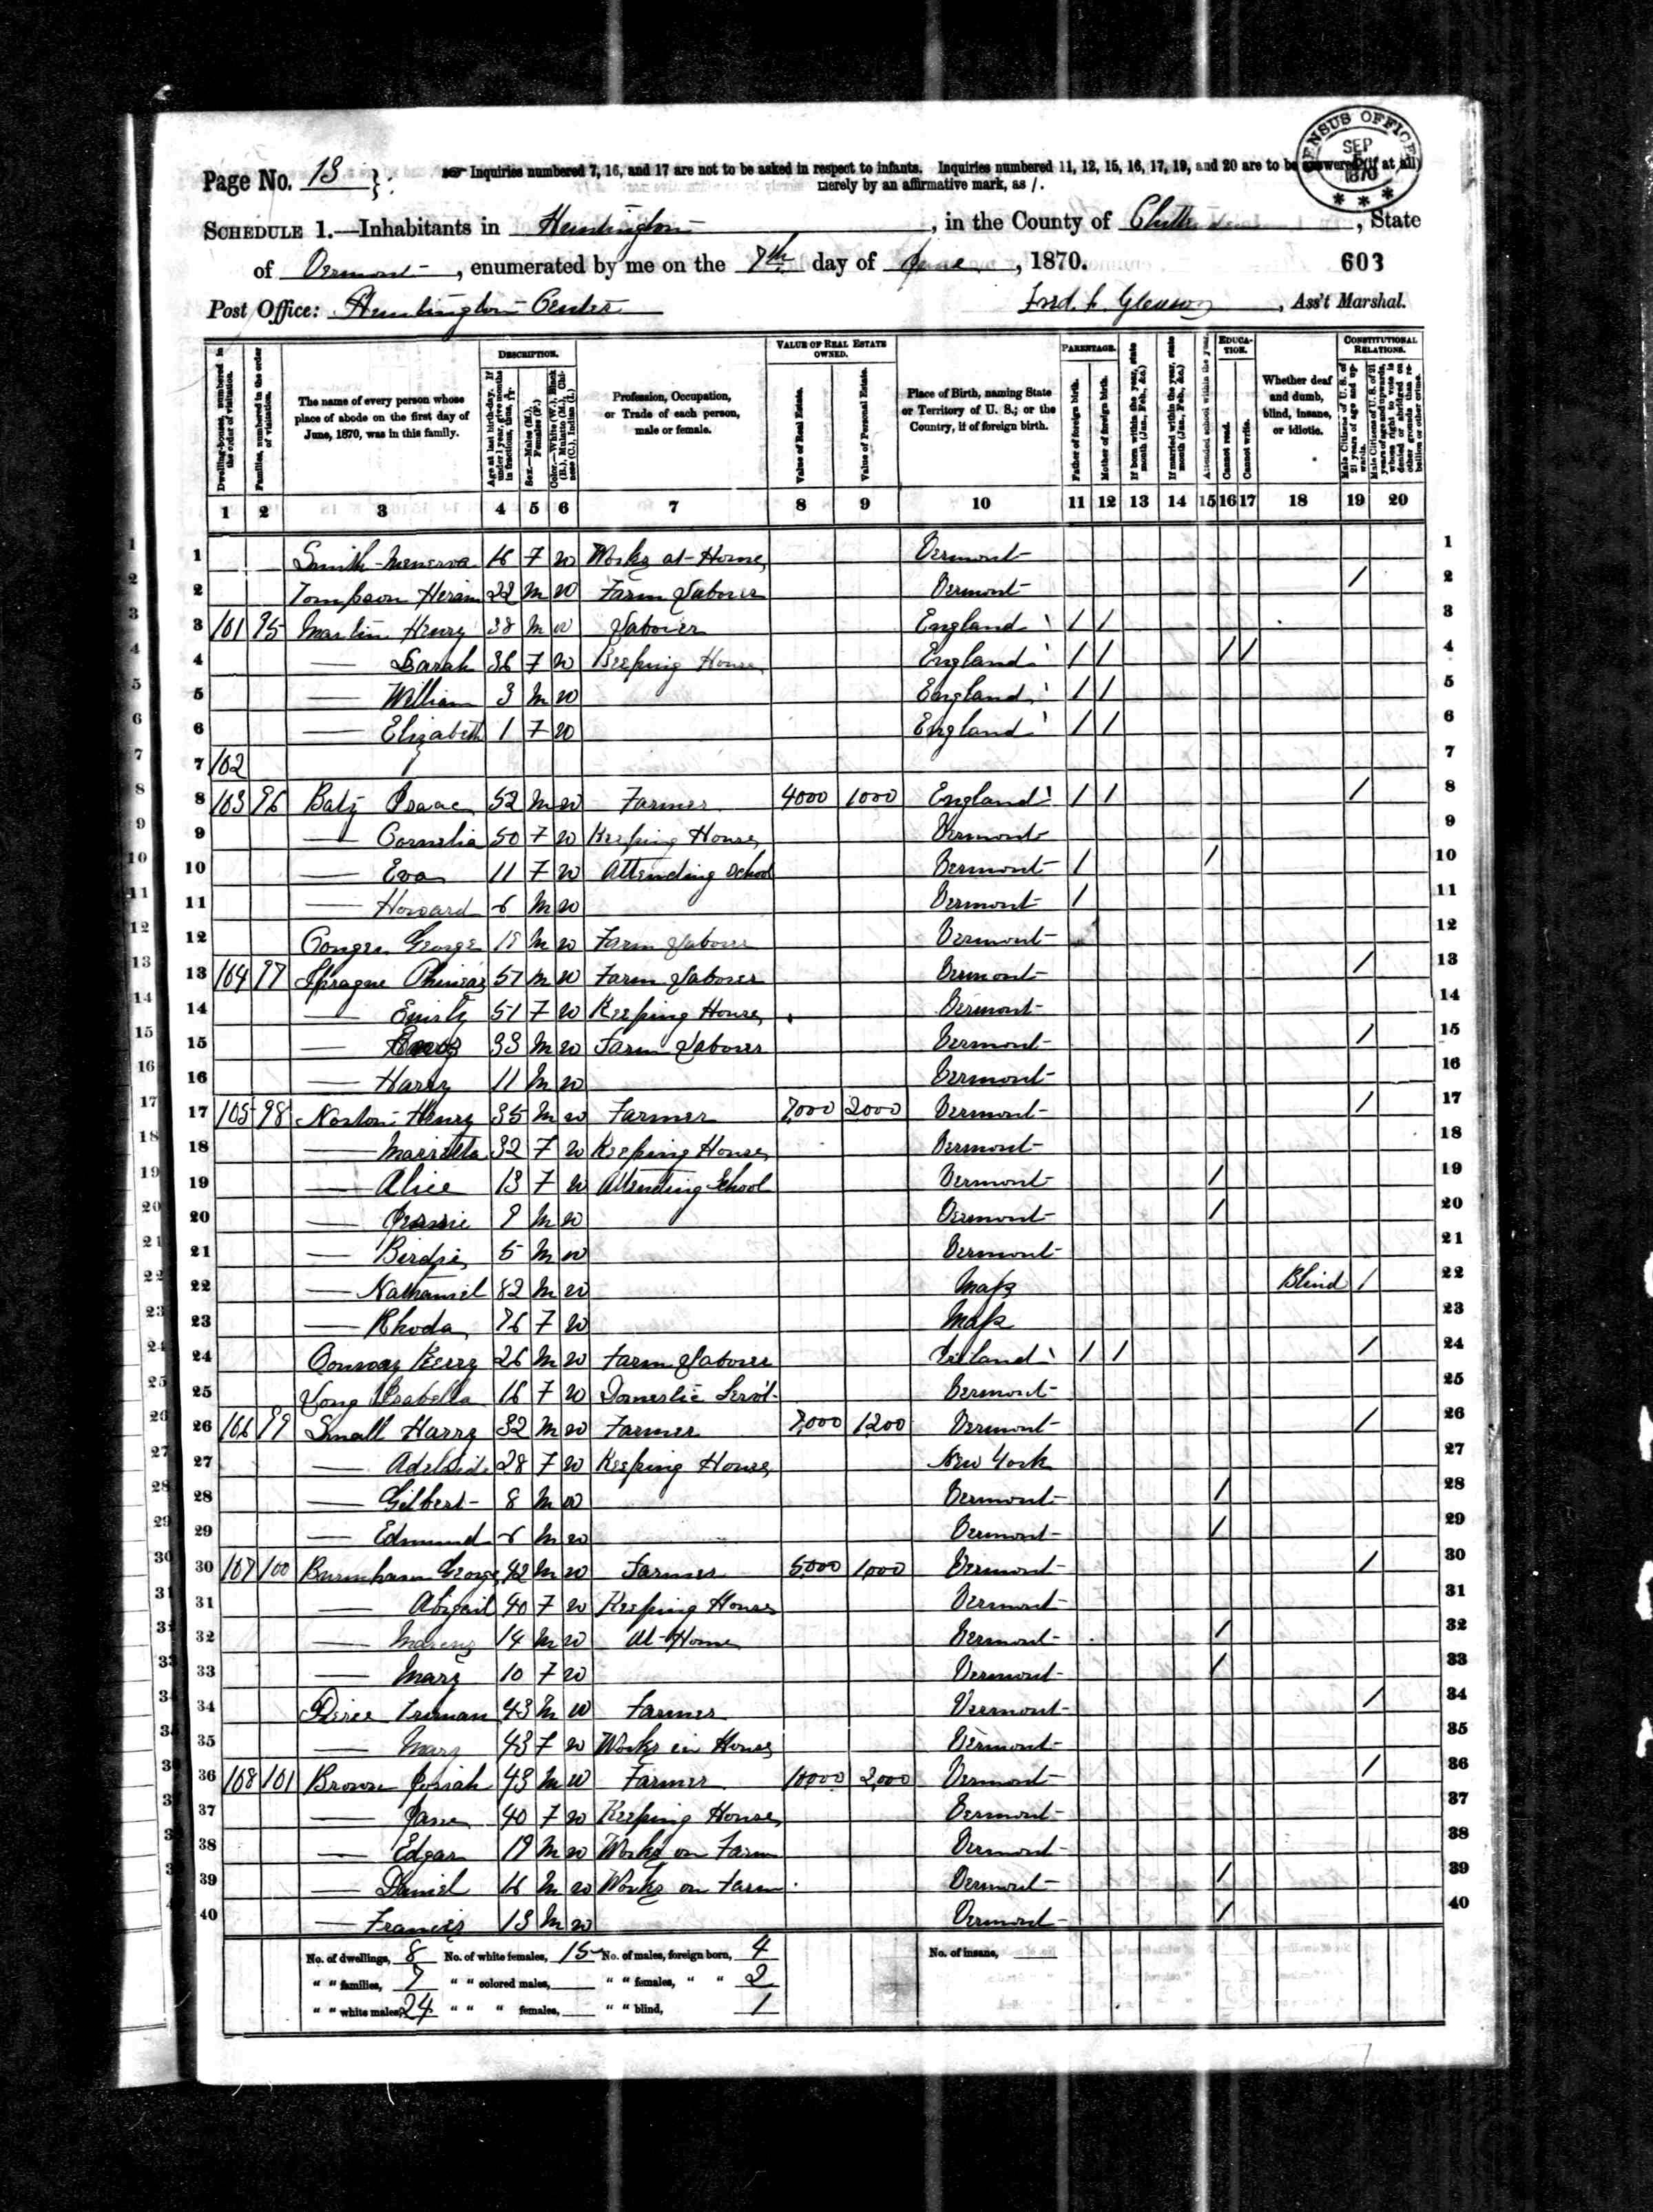 Page No. 13
Inquiries numbered 7, 16, and 17 are not to be asked in respect to infants. Inquiries numbered 11, 12, 15, 16, 17, 19, and 20 are to be answered (if at all)
merely by an affirmative mark, as /.
CENSUS OFFICE
SEP
1870
* * *
SCHEDULE 1.—Inhabitants in Huntington, in the County of Chittenden, State
of Vermont, enumerated by me on the 7th day of June, 1870.
603
Post Office: Huntington Center
Fred. L. Gleason, Ass't Marshal.
Dwelling-houses, numbered in the order of visitation.
Families, numbered in the order of visitation.
The name of every person whose place of abode on the first day of June, 1870, was in this family.
DESCRIPTION.
Age at last birth-day. If under 1 year, give months in fractions, thus, 3/12.
Sex.—Males (M.), Females (F.)
Color.—White (W.), Black (B.), Mulatto (M.), Chinese (C.), Indian (I.)
Profession, Occupation, or Trade of each person, male or female.
VALUE OF REAL ESTATE OWNED.
Value of Real Estate.
Value of Personal Estate.
Place of Birth, naming State or Territory of U. S.; or the Country, if of foreign birth.
PARENTAGE.
Father of foreign birth.
Mother of foreign birth.
If born within the year, state month (Jan., Feb., &c.)
If married within the year, state month (Jan., Feb., &c.)
Attended school within the year.
EDUCATION.
Cannot read.
Cannot write.
Whether deaf and dumb, blind, insane, or idiotic.
CONSTITUTIONAL RELATIONS.
Male Citizens of U. S. of 21 years of age and upwards.
Male Citizens of U. S. of 21 years of age and upwards, whose right to vote is denied or abridged on other grounds than rebellion or other crime.
1 2 3 4 5 6 7 8 9 10 11 12 13 14 15 16 17 18 19 20
1 Smith Menerva 16 F W Works at Home Vermont 1
2 Tompson Hiram 22 M W Farm Laborer Vermont / 2
3 101 95 Martin Henry 38 M W Laborer England / / 3
4 — Sarah 36 F W Keeping House England / / / / 4
5 — William 3 M W England / / 5
6 — Elizabeth 1 F W England / / 6
7 102 7
8 103 96 Isaac 52 M W Farmer 4000 1000 England / / / 8
9 — Cornelia 50 F W Keeping House Vermont 9
10 — Eva 11 F W Attending School Vermont / / 10
11 — Howard 6 M W Vermont / 11
12 Conger George 18 M W Farm Laborer Vermont 12
13 104 97 Sprague 57 M W Farm Laborer Vermont / 13
14 — Emily 51 F W Keeping House Vermont 14
15 — 33 M W Farm Laborer Vermont / 15
16 — Harry 11 M W Vermont 16
17 105 98 Norton Henry 35 M W Farmer 7,000 2000 Vermont / 17
18 — Marietta 32 F W Keeping House Vermont 18
19 — Alice 13 F W Attending School Vermont / 19
20 — M W Vermont / 20
21 — Birdsie 5 M W Vermont 21
22 — Nathaniel 82 M W Mass Blind / 22
23 — Rhoda 76 F W Mass 23
24 Conway 26 M W Farm Laborer Ireland / / / 24
25 Long Isabella 16 F W Domestic Serv't Vermont 25
26 106 99 Small Harry 32 M W Farmer 7,000 1200 Vermont / 26
27 — Adelaide 28 F W Keeping House New York 27
28 — Gilbert 8 M W Vermont / 28
29 — Edmund 6 M W Vermont / 29
30 107 100 Burnham George 42 M W Farmer 5,000 1,000 Vermont / 30
31 — Abigail 40 F W Keeping House Vermont 31
32 — 14 M W At Home Vermont / 32
33 — Mary 10 F W Vermont / 33
34 Pierce Truman 43 M W Farmer Vermont / 34
35 — Mary 43 F W Works in House Vermont 35
36 108 101 Brown Josiah 43 M W Farmer 10000 2,000 Vermont / 36
37 — Jane 40 F W Keeping House Vermont 37
38 — Edgar 19 M W Works on Farm Vermont 38
39 — Daniel 16 M W Works on Farm Vermont / 39
40 — Francis 13 M W Vermont / 40
No. of dwellings, 8 No. of white females, 15 No. of males, foreign born, 4 No. of insane,
" " families, 7 " " colored males, " " females, " " 2
" " white males, 24 " " " females, " " blind, 1